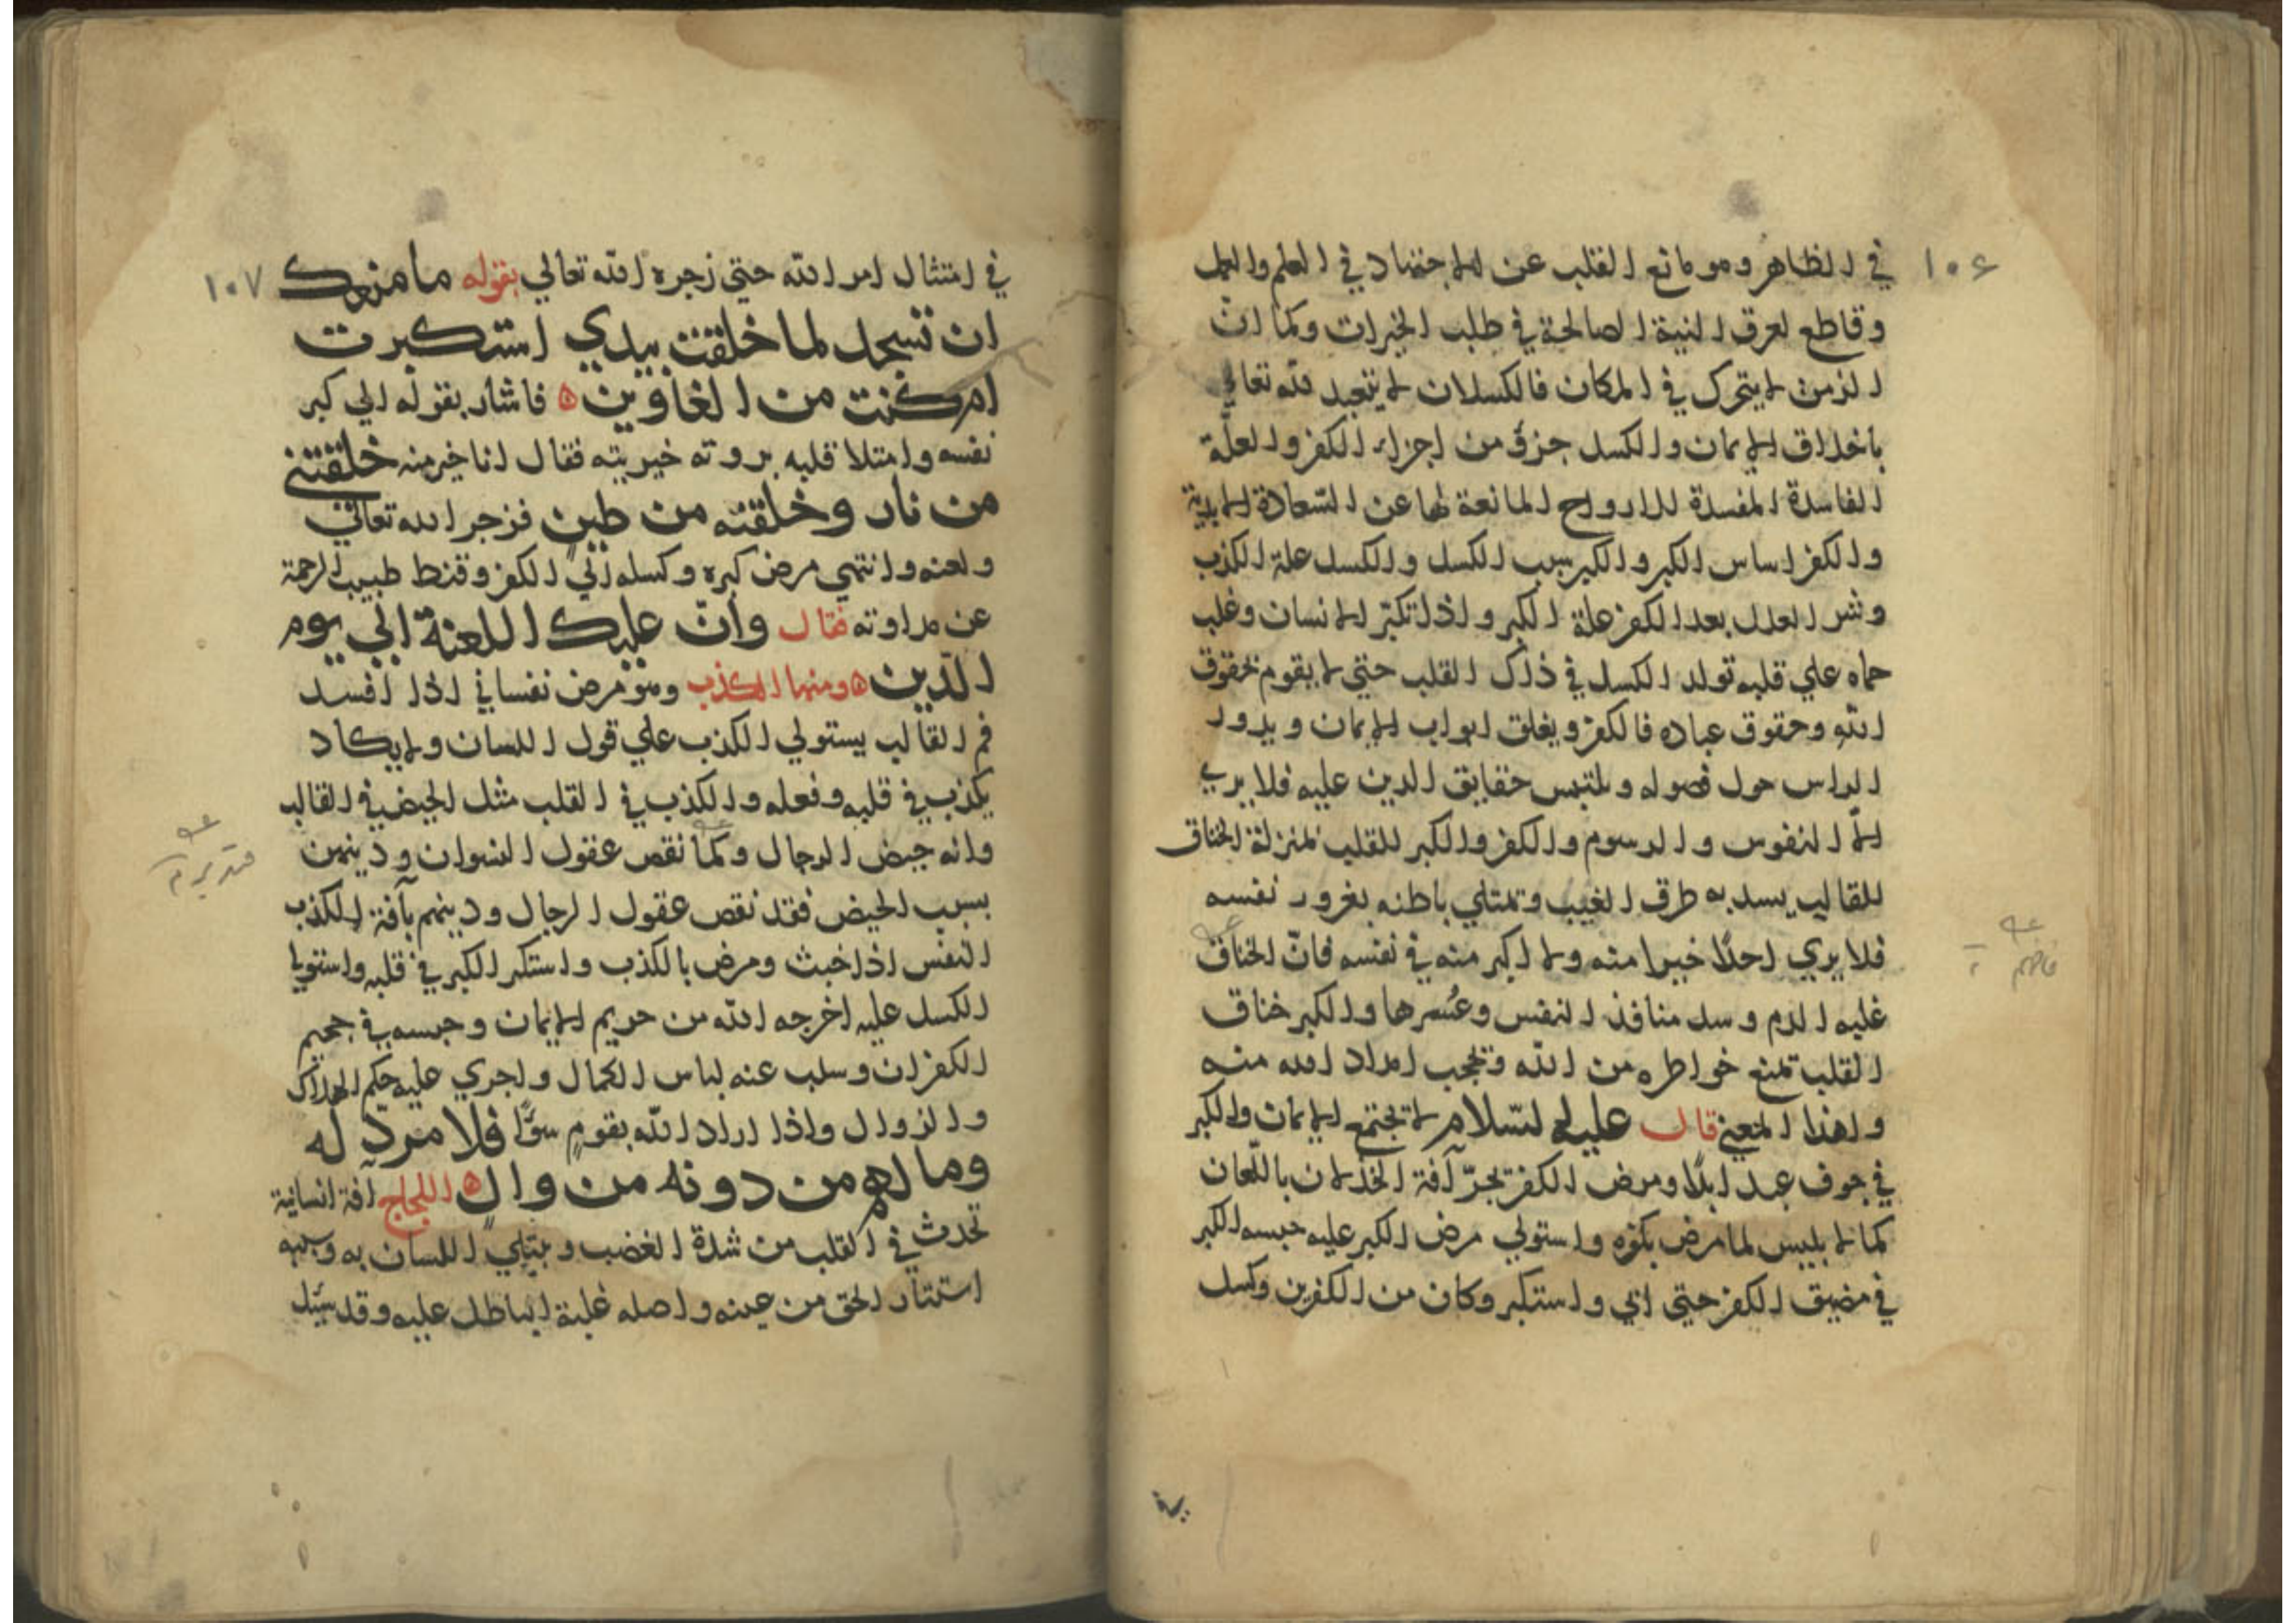 ١٠٦
في الظاهر وهو مانع القلب عن الاجتهاد في العلم والعمل
وقاطع لعرق النية الصالحة في طلب الخيرات وكما انّ
الزمن لا يتحرك في المكان فالكسلان لا يتعبد لله تعالي
باخلاق الايمان والكسل جزؤ من اجزاء الكفر والعلّة
الفاسدة المفسدة للارواح المانعة لها عن السّعادة الابدية
والكفر اساس الكبر والكبر سبب الكسل والكسل علة الكذب
وشر العلل بعد الكفر علة الكبر واذا تكبّر الانسان وغلب
حماه علي قلبه تولد الكسل في ذلك القلب حتي لا يقوم بحقوق
الله وحقوق عباده فالكفر ويغلق ابواب الايمان ويدور
الواس حول فصوله ويلتبس حقايق الدين عليه فلا يري
الاّ النفوس والرسوم والكفر والكبر للقلب بمنزلة الخناق
للقالب يسد به طرق الغيب وتمتلي باطنه بغرور نفسه
فلا يري احدًا خيرا منه ولا اكبر منه في نفسه فانّ الخناق
غلبه الدم وسد منافذ النفس وعُسرها والكبر خناق
القلب تمنع خواطره من الله وتحجب امداد الله منه
ولهذا المعني قال عليه السّلام لا تجتمع الايمان والكبر
في جوف عبد ابدًا ومرض الكفر تجرّ آفة الخذلان باللّعان
كما لابليس لما مرض بكوه واستولي مرض الكبر عليه حبسه الكبر
في مضيق الكفر حتي ابي واستكبر وكان من الكفرين وكسل
١٠٧
في امتثال امر الله حتي زجره الله تعالي بقوله ما منعك
ان تسجد لما خلقت بيدي استكبرت
ام كنت من الغاوين ه فاشار بقوله الي كبر
نفسه وامتلا قلبه بروته خيريته فقال انا خير منه خلقتني
من نار وخلقته من طين فزجر الله تعالي
ولعنه وانتهي مرض كبره وكسله الي الكفر وقنط طبيب الرحمة
عن مداوته فقال وانّ عليك اللعنة الي يوم
الدّين ه ومنها الكذب وهو مرض نفساني اذا افسد
فم القالب يستولي الكذب علي قول اللسان ولا يكاد
يكذب في قلبه وفعله والكذب في القلب مثل الحيض في القالب
وانه حيض الرجال وكما نقص عقول النسوان ودينهن
بسبب الحيض فقد نقص عقول الرجال ودينهم بآفة الكذب
النفس اذا خبث ومرض بالكذب واستكبر الكبر في قلبه واستويا
الكسل عليه اخرجه الله من حريم الايمان وحبسه في جحيم
الكفران وسلب عنه لباس الكمال واجري عليه حكم الهلاك
والزوال واذا اراد الله بقومٍ سوًا فلا مردّ له
وما لهم من دونه من والٍ ه اللجاج آفة انسانية
تحدث في القلب من شدة الغضب ويبتلي اللسان به وسببه
استتار الحق من عينه واصله غلبة الباطل عليه وقد سئل